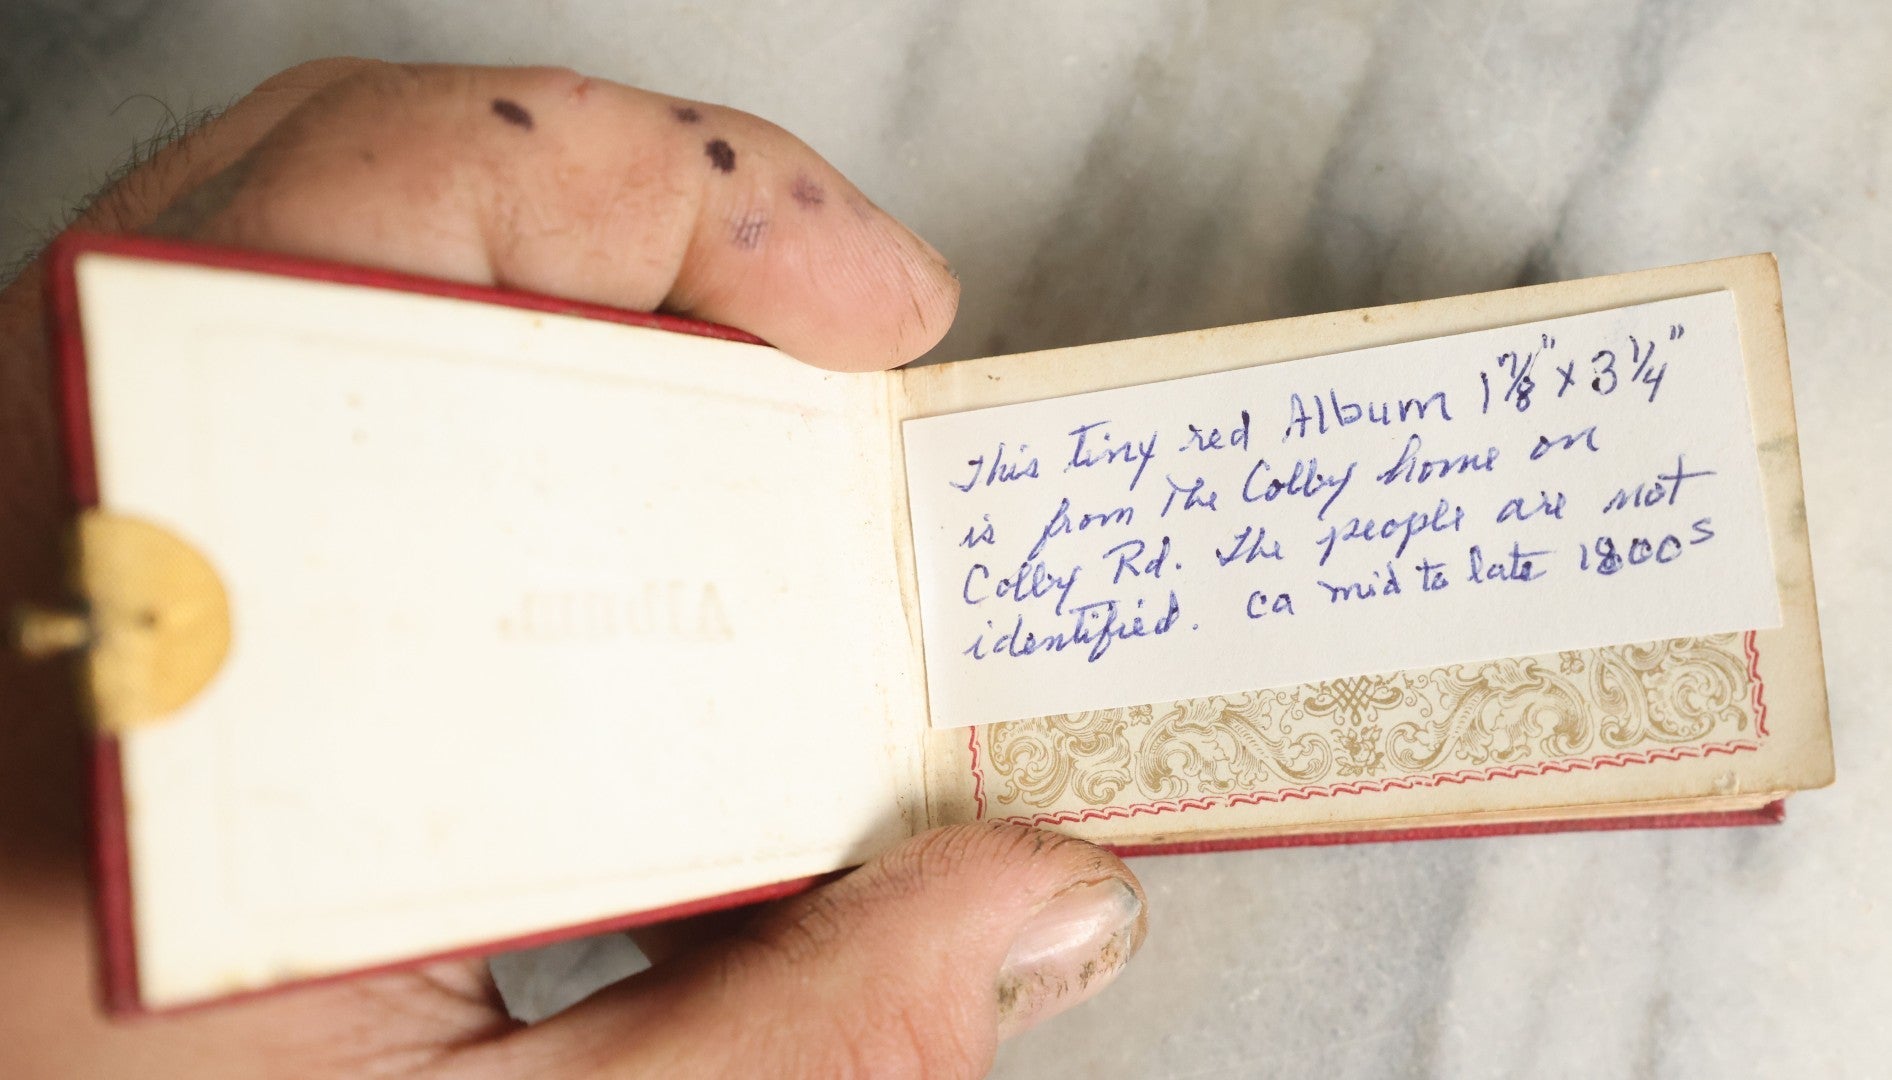 Album.
This tiny red Album 1 7/8" x 3 1/4"
is from The Colby home on
Colby Rd. The people are not
identified. ca mid to late 1800s